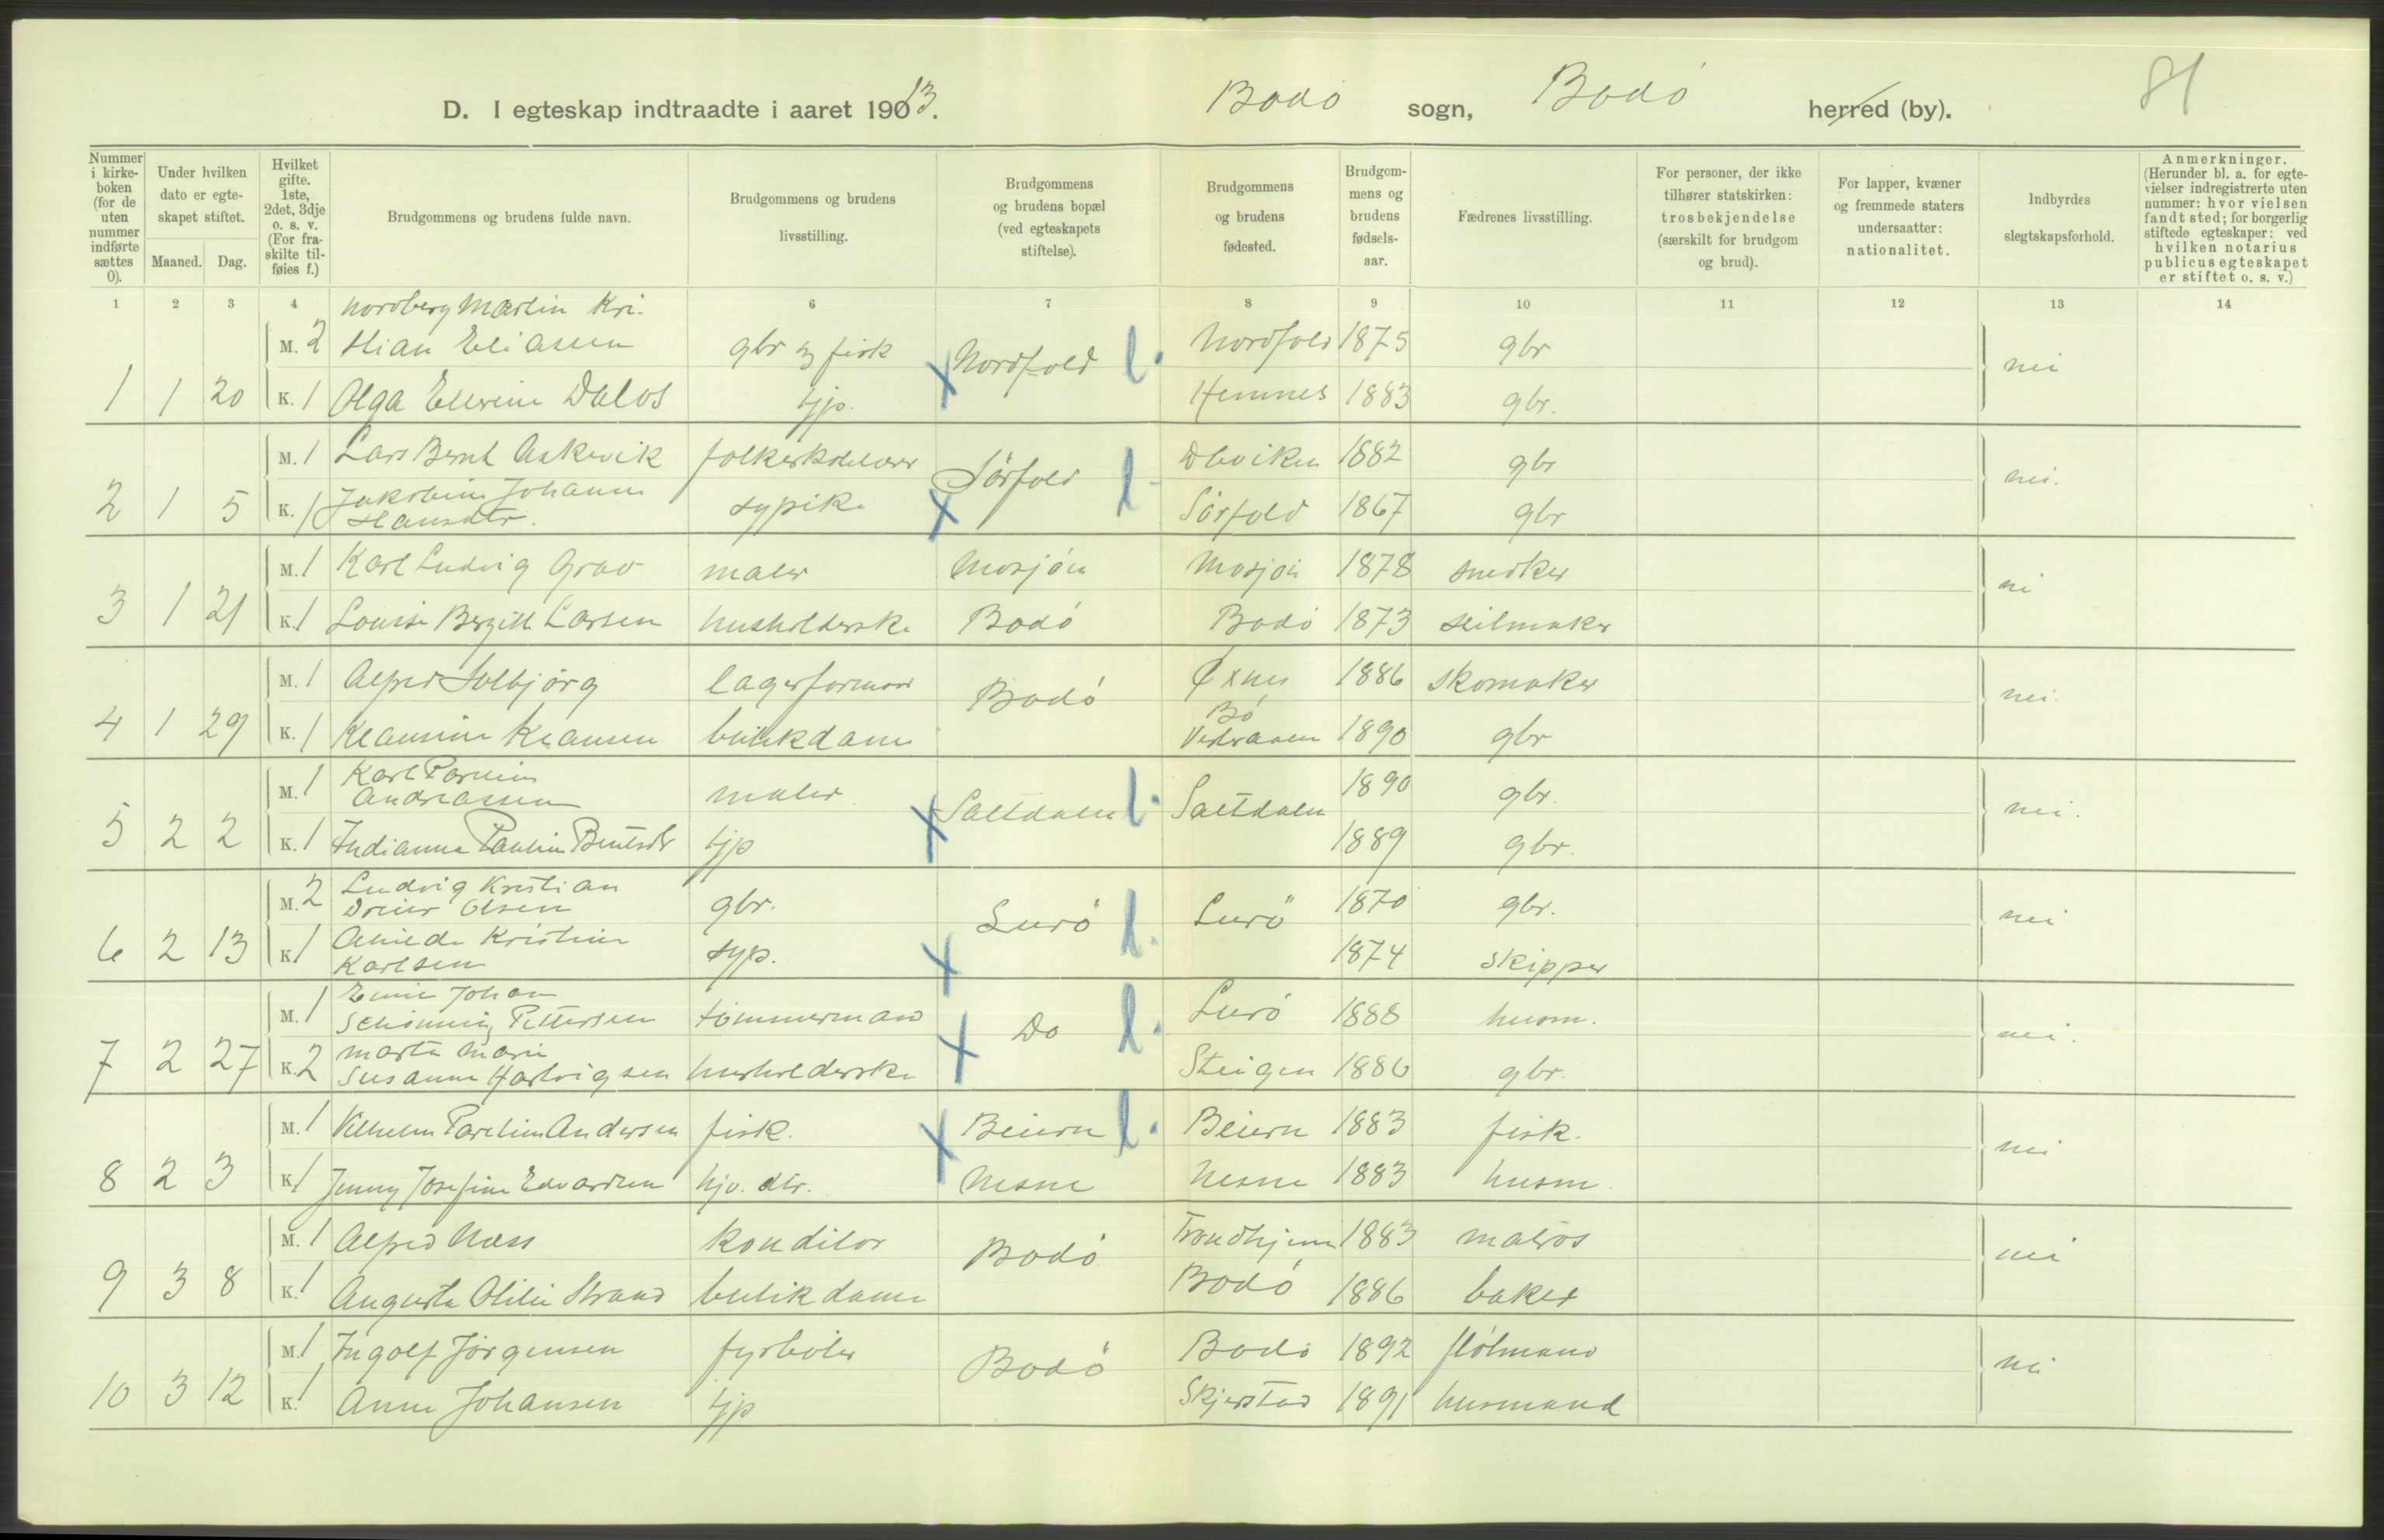 81
D. I egteskap indtraadte i aaret 1913. Bodø sogn, Bodó herred (by).
Nummer i kirke-boken (for de uten nummer indførte sættes 0).
Under hvilken dato er egte-skapet stiftet.
Maaned. Dag.
Hvilket gifte. 1ste, 2det, 3dje o. s. v. (For fra-skilte til-føies f.)
Brudgommens og brudens fulde navn.
Brudgommens og brudens livsstilling.
Brudgommens og brudens bopæl (ved egteskapets stiftelse).
Brudgommens og brudens fødested.
Brudgom-mens og brudens fødsels-aar.
Fædrenes livsstilling.
For personer, der ikke tilhører statskirken: trosbekjendelse (særskilt for brudgom og brud).
For lapper, kvæner og fremmede staters undersaatter: nationalitet.
Indbyrdes slegtskapsforhold.
Anmerkninger. (Herunder bl. a. for egte-vielser indregistrerte uten nummer: hvor vielsen fandt sted; for borgerlig stiftede egteskaper: ved hvilken notarius publicus egteskapet er stiftet o. s. v.)
1 2 3 4 6 7 8 9 10 11 12 13 14
Nordberg Martin Kri-
M. 2 stian Eliassen gbr og fisk Nordfold l. Nordfold 1875 gbr nei
1 1 20 K. 1 Olga Elevine Dalos tjp. Hemnes 1883 gbr.
M. 1 Lars Bernt Askevik folkeskolelærer Sörfold l 1882 gbr nei.
2 1 5 K. 1 Jakobine Johanne
Hansdtr. sypike Sörfold 1867 gbr
M. 1 Karl Ludvig Grav maler Mosjóen Mosjöen 1878 snedker nei
3 1 21 K. 1 Louise Bergitte Larsen husholderske Bodó Bodó 1873 seilmaker
M. 1 Alfred Solbjörg lagerformand Bodó Øxnes 1886 skomaker nei.
4 1 29 K. 1 Klausine Klausen butikdame Bó
Vesteraalen 1890 gbr
M. 1 Karl Parelius
Andreassen maler Saltdalen l. Saltdalen 1890 gbr. nei.
5 2 2 K. 1 Indianna Pauline Bentsdtr tjp 1889 gbr.
M. 2 Ludvig Kristian
Dreier Olsen gbr. Lurö l. Lurö 1870 gbr. nei
6 2 13 K 1 Alvilde Kristine
Karlsen syp. 1874 skipper
M. 1 Emil Johan
Schönning Pettersen tömmermand Do l. Lurö 1888 husm. nei.
7 2 27 K. 2 Marta Marie
Susanne Hartvigsen husholderske Steigen 1886 gbr.
M. 1 Vilhelm Parelius Andersen fisk. Beiern l. Beiern 1883 fisk. nei
8 2 3 K 1 Jenny Josefine Edvardsen hjv. dtr. Nesne Nesne 1883 husm.
M. 1 Alfred Næss konditor Bodó Trondhjem 1883 matros nei
9 3 8 K. 1 Augusta Otilie Strand butikdame Bodó 1886 baker
M. 1 Ingolf Jörgensen fyrböter Bodö Bodö 1892 nei
10 3 12 K. 1 Anne Johansen tjp Skjerstad 1891 husmand